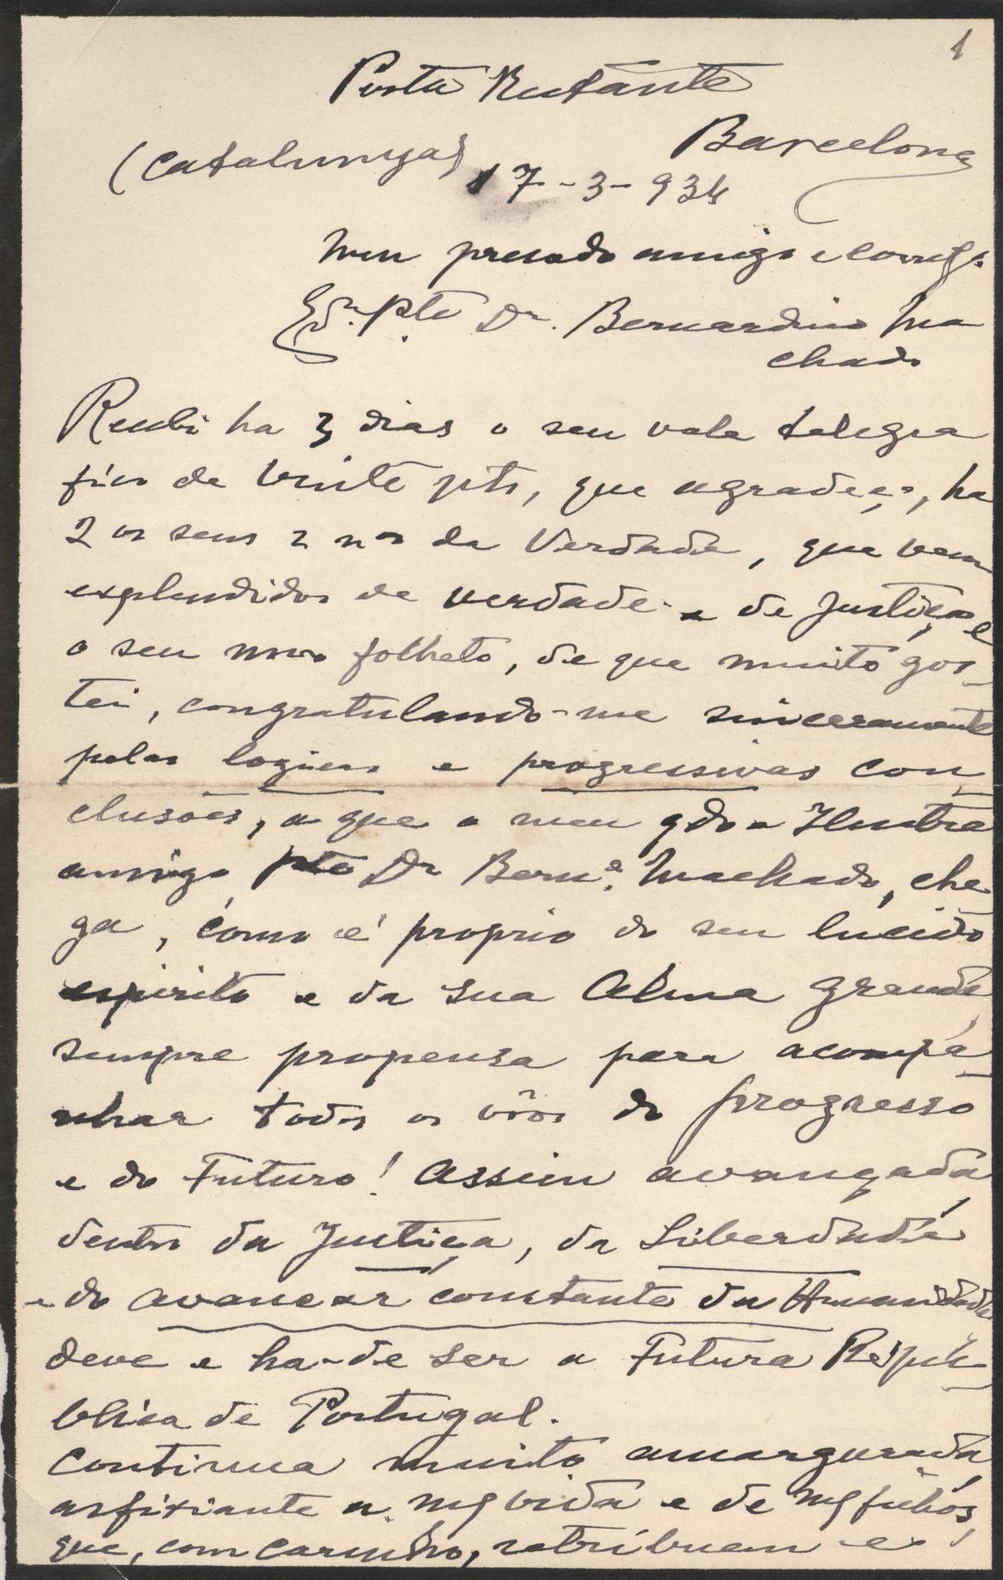 1
Posta Restante
Barcelona
(Catalunya) 17-3-934
Meu presado amigo e correlg.
Ex.mo Pte Dr. Bernardino Ma
chado
Recebi ha 3 dias o seu vale telegra
fico de vinte pts, que agradeço, ha
2 os seus 2 nos da Verdade, que vem
esplendidos de verdade e de Justiça, e
o seu novo folheto, de que muito gos-
tei, congratulando-me sinceramente
pelas logicas e progressivas con-
clusões, a que o meu qdo e Ilustre
amigo Pte Dr Bern.o Machado, che
ga, como é proprio do seu lucido
espirito e da sua Alma grande,
sempre propensa para acompa-
nhar todos os vôos do progresso
e do Futuro! Assim avançada,
dentro da Justiça, da Liberdade
e do avançar constante da Humanidade
deve e ha-de ser a Futura Repu-
blica de Portugal.
Continua muito amargurada,
asfixiante a vida e de filhos,
que, com carinho, retribuem e